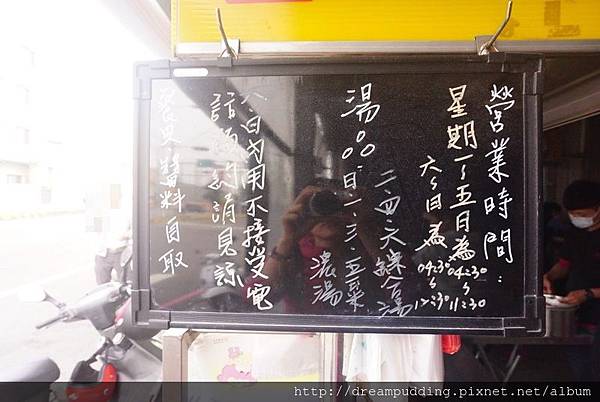 營業時間:
星期一~五日為04:30~11:30
六、日為04:30~12:30
湯:
二.四.六綜合湯
日.一.三.五菜
濃湯
六、日內用不接受電
話預約請見諒
醬料自取
http://dreampudding.pixnet.net/album